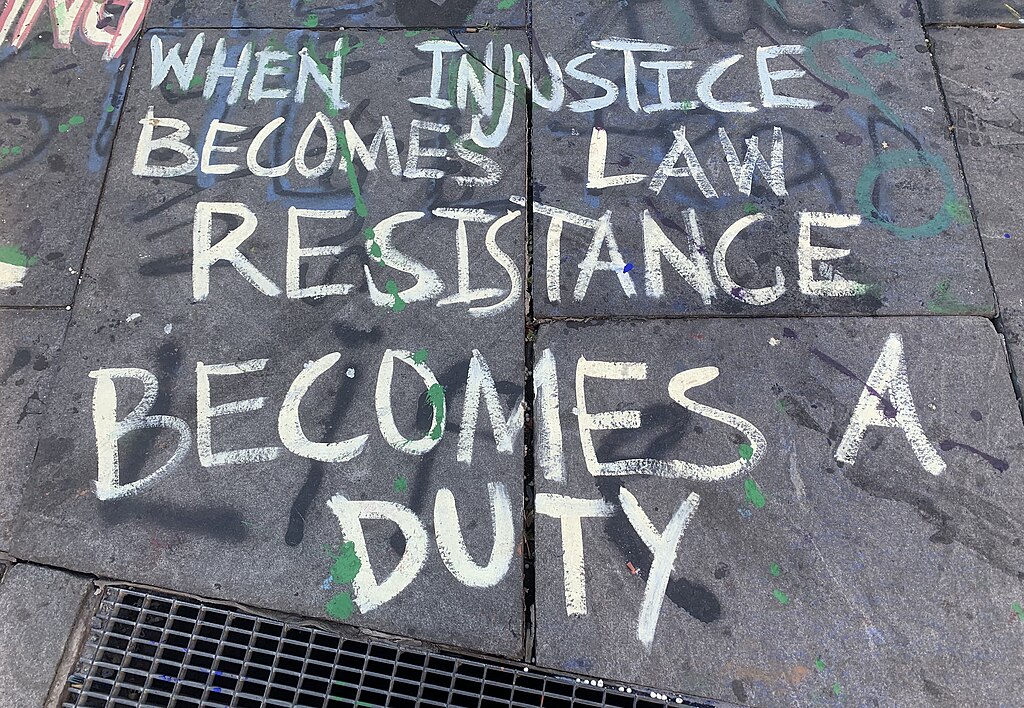 ING
WHEN INJUSTICE
BECOMES LAW
RESISTANCE
BECOMES A
DUTY